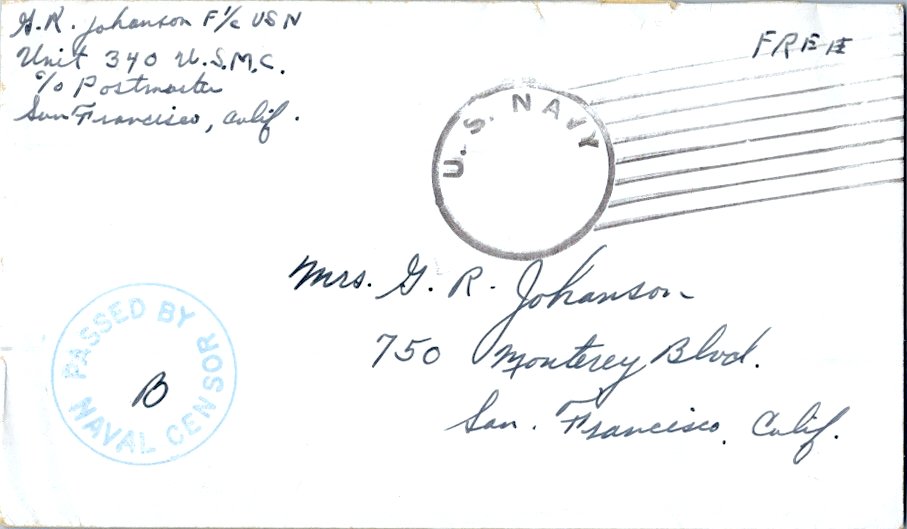 G.R. Johanson F 1/c USN
Unit 340 U.S.M.C.
c/o Postmaster
San Francisco, Calif.
FREE
U.S. NAVY
Mrs. G. R. Johanson
750 Monterey Blvd.
San. Francisco, Calif.
PASSED BY
B
NAVAL CENSOR